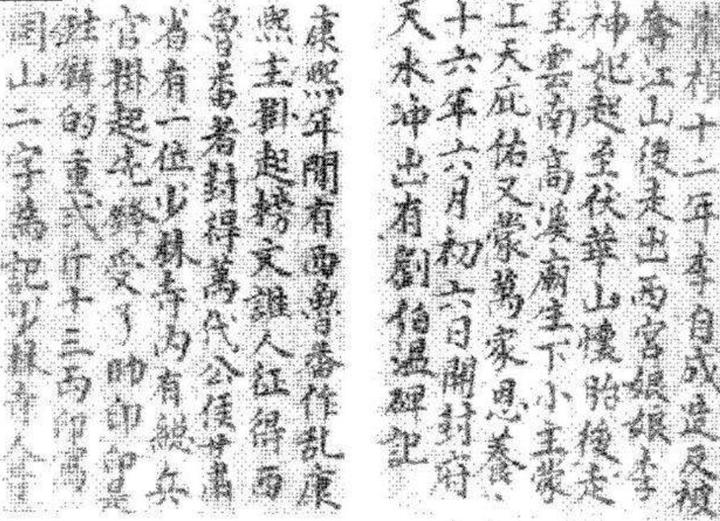 禎十二年李自成造反被
奪江山後走出西宮娘娘李
神妃起至伏華山懷胎後走
至雲南高溪廟生下小主蒙
上天庇佑又蒙萬家恩養
十六年六月初六日開封府
天水冲出有劉伯温碑記
康熙年間有西魯番作乱康
熙主掛起榜文誰人征得西
魯番者封得萬代公侯甘肅
省有一位少林寺内有總兵
官掛起先鋒受了帥印印是
鉄鑄的重弍斤十三両印為
山二字為記少林寺人